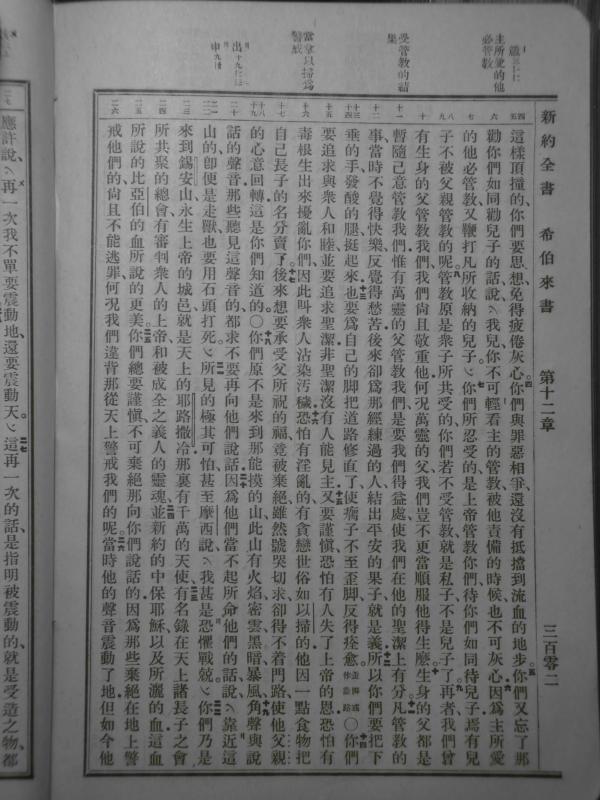 新約全書 希伯來書 第十二章 三百零二
主所愛的他必管教
受管教的結果
當拿以掃爲警戒
這樣頂撞的你們要思想免得疲倦灰心你們與罪惡相爭還沒有抵擋到流血的地步你們又忘了那
勸你們如同勸兒子的話說我兒你不可輕看主的管教被他責備的時候也不可灰心因爲主所愛
的他必管教又鞭打凡所收納的兒子你們所忍受的是上帝管教你們待你們如同待兒子焉有兒
子不被父親管教的呢管教原是衆子所共受的你們若不受管教就是私子不是兒子了再者我們曾
有生身的父管教我們我們尚且敬重他何况萬靈的父我們豈不更當順服他得生麽生身的父都是
暫隨己意管教我們惟有萬靈的父管教我們是要我們得益處使我們在他的聖潔上有分凡管教的
事當時不覺得快樂反覺得愁苦後來卻爲那經練過的人結出平安的果子就是義所以你們要把下
垂的手發酸的腿挺起來也要爲自己的脚把道路修直了使瘸子不至歪脚反得痊愈〇你們
要追求與衆人和睦並要追求聖潔非聖潔沒有人能見主又要謹愼恐怕有人失了上帝的恩恐怕有
毒根生出來擾亂你們因此叫衆人沾染汚穢恐怕有淫亂的有貪戀世俗如以掃的他因一點食物把
自己長子的名分賣了後來想要承受父所祝的福竟被棄絕雖然號哭切求卻得不着門路使他父親
的心意回轉這是你們知道的〇你們原不是來到那能摸的山此山有火焰密雲黑暗暴風角聲與說
話的聲音那些聽見這聲音的都求不要再向他們說話因爲他們當不起所命他們的話說靠近這
山的卽便是走獸也要用石頭打死所見的極其可怕甚至摩西說我甚是恐懼戰兢你們乃是
來到錫安山永生上帝的城邑就是天上的耶路撒冷那裏有千萬的天使有名錄在天上諸長子之會
所共聚的總會有審判衆人的上帝和被成全之義人的靈魂並新約的中保耶穌以及所灑的血這血
所說的比亞伯的血所說的更美你們總要謹愼不可棄絕那向你們說話的因爲那些棄絕在地上警
戒他們的尚且不能逃罪何况我們違背那從天上警戒我們的呢當時他的聲音震動了地但如今他
應許說再一次我不單要震動地還要震動天這再一次的話是指明被震動的就是受造之物都